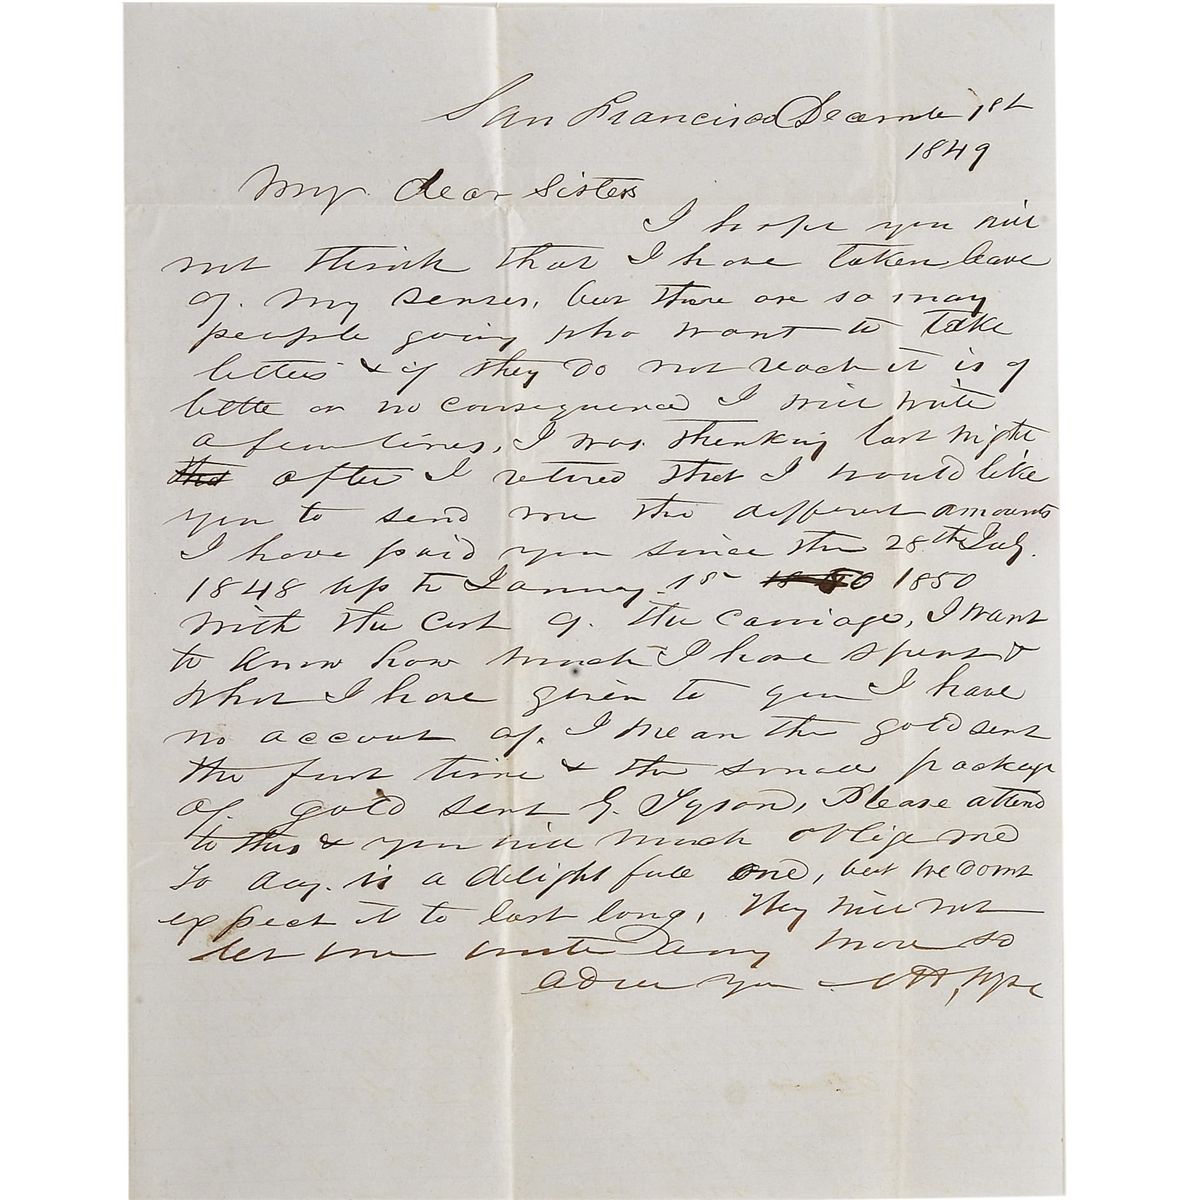 San Francisco December 1st
1849
My dear Sisters
I hope you will
not think that I have taken leave
of my senses, but there are so many
people going who want to take
letters & if they do not reach it is of
little or no consequence I will write
a few lines, I was thinking last night
that after I retired that I would like
you to send me the different amounts
I have paid you since the 28th July
1848 up to January 1st 1850 1850
with the cost of the carriage, I want
to know how much I have spent &
what I have given to you I have
no account of, I mean the gold sent
the first time & the small package
of gold sent G. Tyson, Please attend
to this & you will much oblige me
To day is a delight full one, but we dont
expect it to last long, They will not
let me write any more so
adieu you